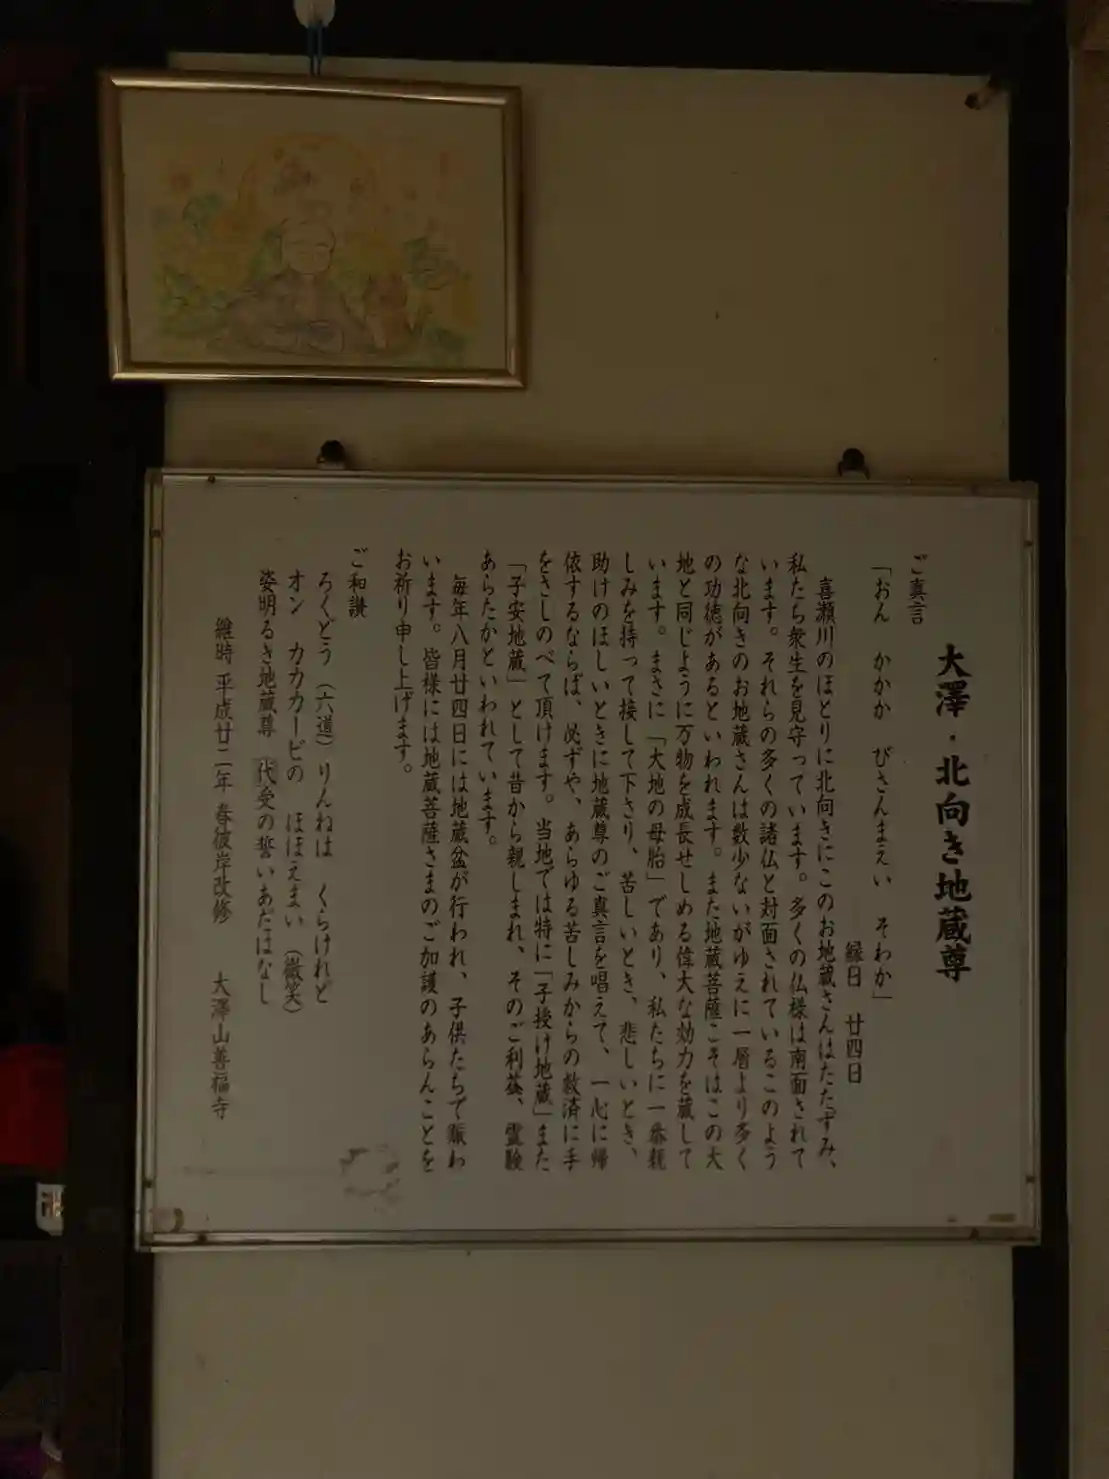 大澤・北向き地蔵尊
ご真言
「おん　かかか　びさんまえい　そわか」
縁日　廿四日
喜瀬川のほとりに北向きにこのお地蔵さんはたたずみ、
私たち衆生を見守っています。多くの仏様は南面されて
います。それらの多くの諸仏と対面されているこのよう
な北向きのお地蔵さんは数少ないがゆえに一層より多く
の功徳があるといわれます。また地蔵菩薩こそはこの大
地と同じように万物を成長せしめる偉大な効力を蔵して
います。まさに「大地の母胎」であり、私たちに一番親
しみを持って接して下さり、苦しいとき、悲しいとき、
助けのほしいときに地蔵尊のご真言を唱えて、一心に帰
依するならば、必ずや、あらゆる苦しみからの救済に手
をさしのべて頂けます。当地では特に「子授け地蔵」また
「子安地蔵」として昔から親しまれ、そのご利益、霊験
あらたかといわれています。
毎年八月廿四日には地蔵盆が行われ、子供たちで賑わ
います。皆様には地蔵菩薩さまのご加護のあらんことを
お祈り申し上げます。
ご和讃
ろくどう（六道）りんねは　くらけれど
オン　カカカービの　ほほえまい（微笑）
姿明るき地蔵尊　代受の誓いあだはなし
維時　平成廿二年　春彼岸改修　　大澤山善福寺